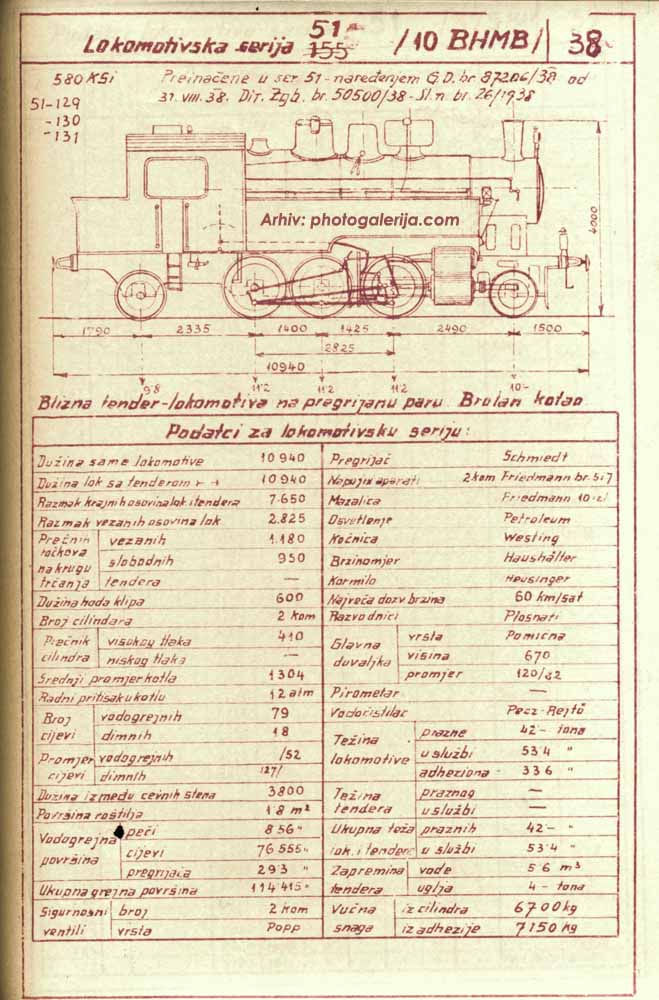 51-
Lokomotivska serija 155 /10 BHMB/ 38-
580 KSi Preinačene u ser. 51 - naređenjem G.D. br. 87206/38 od
51-129 31. VIII. 38. Dir. Zgb. br. 50500/38 - Sl.n. br. 26/1938
-130
-131
Arhiv: photogalerija.com
4000
1790 2335 1400 1425 2490 1500
2825
10940
9'8 11'2 11'2 11'2 10'-
Blizna tender-lokomotiva na pregrijanu paru Brotan kotao
Podatci za lokomotivsku seriju:
Dužina same lokomotive 10 940 Pregrijač Schmiedt
Dužina lok sa tenderom 10 940 Napojni aparati 2 kom Friedmann br. 5i7
Razmak krajnih osovina lok. i tendera 7.650 Mazalica Friedmann
Razmak vezanih osovina lok. 2.825 Osvetlenje Petroleum
Prečnik točkova na krugu trčanja vezanih 1.180 Kočnica Westing
slobodnih 950 Brzinomjer Haushälter
tendera — Kormilo Heusinger
Dužina hoda klipa 600 Najveća dozv brzina 60 km/sat
Broj cilindara 2 kom Razvodnici Plosnati
Prečnik cilindra visokog tlaka 410 Glavna duvaljka vrsta Pomična
niskog tlaka — visina 670
Srednji promjer kotla 1304 promjer 120/82
Radni pritisak u kotlu 12 atm Pirometar —
Broj cijevi vodogrejnih 79 Vodočistilac Pecz-Rejtő
dimnih 18 Težina lokomotive prazne 42'- tona
Promjer cijevi vodogrejnih /52 u službi 53'4 "
dimnih 127/ adheziona - 33'6 "
Dužina između cevnih stena 3800 Težina tendera praznog —
Površina roštilja 1'8 m² u službi —
Vodogrejna površina peći 8'56 " Ukupna teža lok. i tendera praznih 42'- "
cijevi 76'555 " u službi 53'4 "
pregrijača 29'3 " Zapremina tendera vode 5'6 m³
Ukupna grejna površina 114'415 " uglja 4'- tona
Sigurnosni ventili broj 2 kom Vučna snaga iz cilindra 6700 kg
vrsta Popp iz adhezije 7150 kg